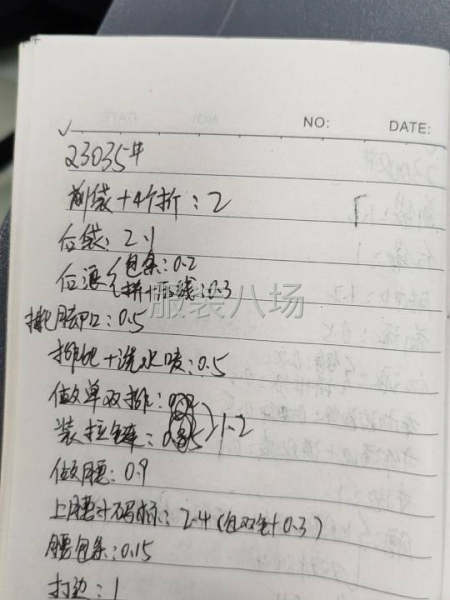 NO:
DATE:
23035#
前袋+4个折：2
后袋：2.1
后浪{包条：0.2
拼+压线：0.3
脚口：0.5
排+洗水唛：0.5
做单双排：
装拉链：
1.2
做腰：0.9
上腰+码标：2.4(包双全+0.3)
腰包条：0.15
打边：1
服装八场